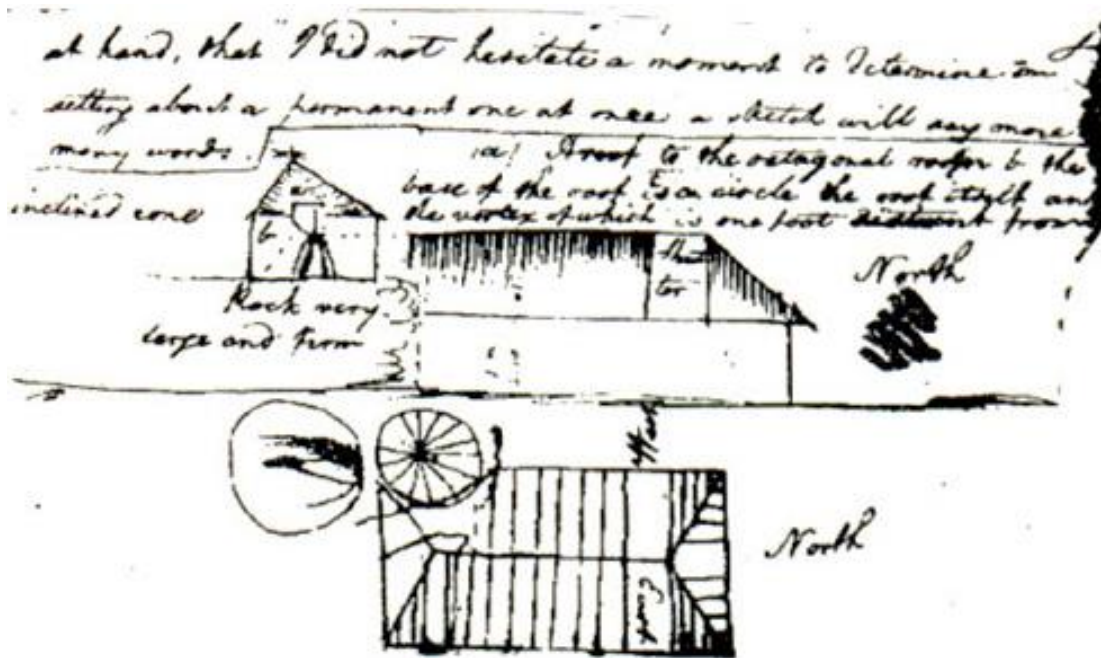 at hand, that I did not hesitate a moment to determine on
setting about a permanent one at once a sketch will say more
many words.
(a) A roof to the octagonal room b the
base of the roof is a circle the roof itself an
inclined cone the vortex of which is one foot distant from
a
b
Shutter
North
Rock very
large and from
West
North
East